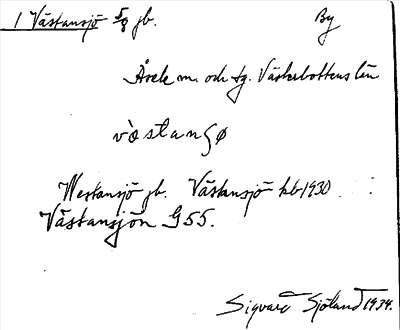 1 Västansjö 5/8 jb. By
Åsele sn. och tg. Västerbottens län
vàstanʃø
Westansjö jb. Västansjö kb 1930
Västansjön G 55.
Sigvard Sjölund 1934.